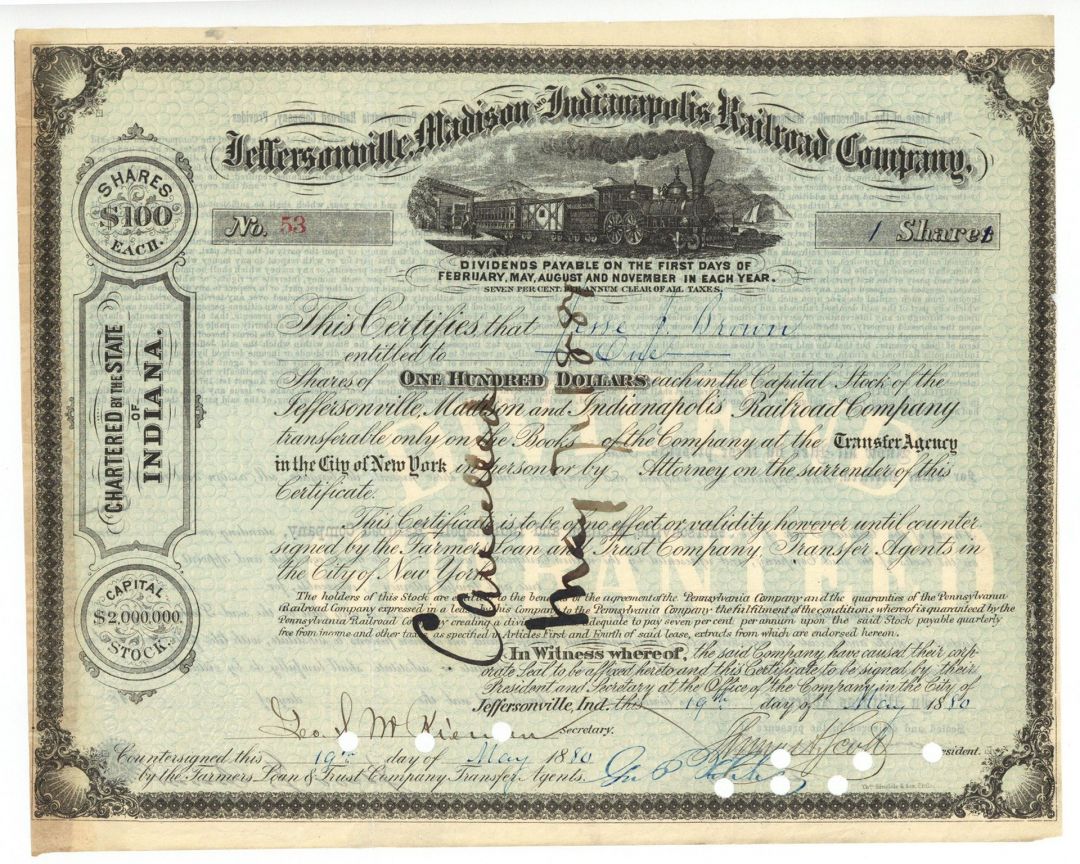 Jeffersonville, Madison AND Indianapolis Railroad Company.
SHARES
$100
EACH.
No. 53
1 Share
DIVIDENDS PAYABLE ON THE FIRST DAYS OF
FEBRUARY, MAY, AUGUST AND NOVEMBER IN EACH YEAR.
SEVEN PER CENT. PER ANNUM CLEAR OF ALL TAXES.
CHARTERED BY THE STATE
OF
INDIANA.
This Certifies, that Jesse J. Brown
entitled to One
Shares of ONE HUNDRED DOLLARS each in the Capital Stock of the
Jeffersonville, Madison and Indianapolis Railroad Company
transferable only on the Books of the Company at the Transfer Agency
in the City of New York in person or by Attorney on the surrender of this
Certificate.
This Certificate is to be of no effect or validity however until counter
signed by the Farmers Loan and Trust Company, Transfer Agents in
the City of New York
The holders of this Stock are entitled to the benefits of the agreement of the Pennsylvania Company and the guaranties of the Pennsylvania
Railroad Company expressed in a lease by this Company to the Pennsylvania Company the fulfilment of the conditions whereof is guaranteed by the
Pennsylvania Railroad Company creating a dividend adequate to pay seven per cent per annum upon the said Stock payable quarterly
free from income and other taxes as specified in Articles First and Fourth of said lease, extracts from which are endorsed hereon.
CAPITAL
$2,000,000.
STOCK.
In Witness whereof, the said Company have caused their corp-
orate Seal to be affixed hereto and this Certificate to be signed by their
President and Secretary at the Office of the Company in the City of
Jeffersonville, Ind. this 19th day of May 1880
Secretary.
President.
Countersigned this 19th day of May 1880
by the Farmers Loan & Trust Company Transfer Agents.
Cancelled
May 7th 1881